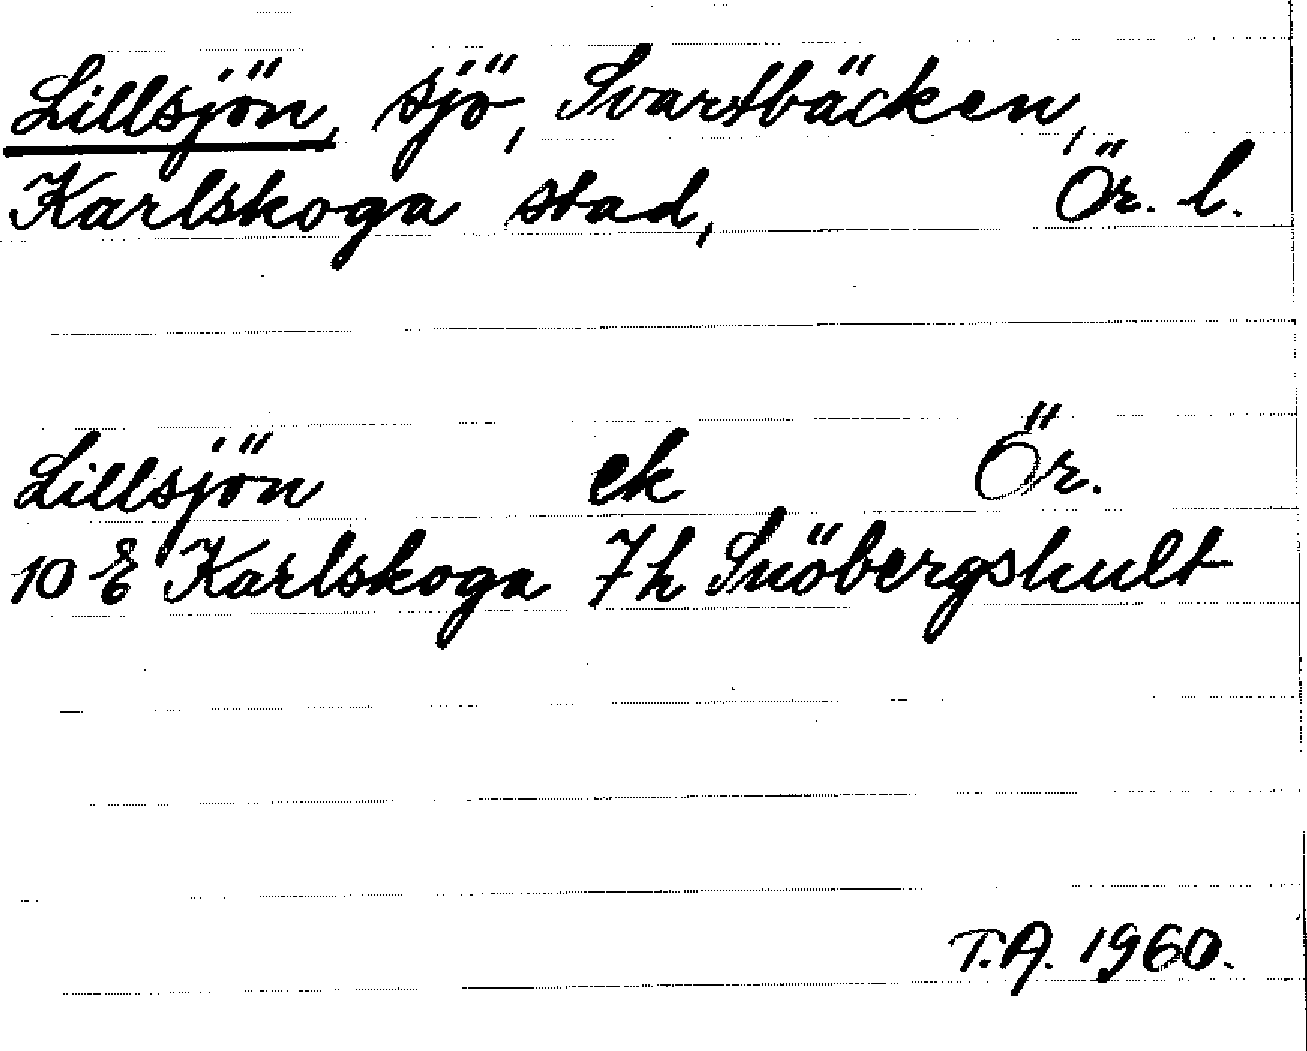 Lillsjön, sjö, Svartbäcken,
Karlskoga stad, Ör. l.
Lillsjön ek Ör.
10 E Karlskoga 7h Snöbergshult
T.A. 1960.